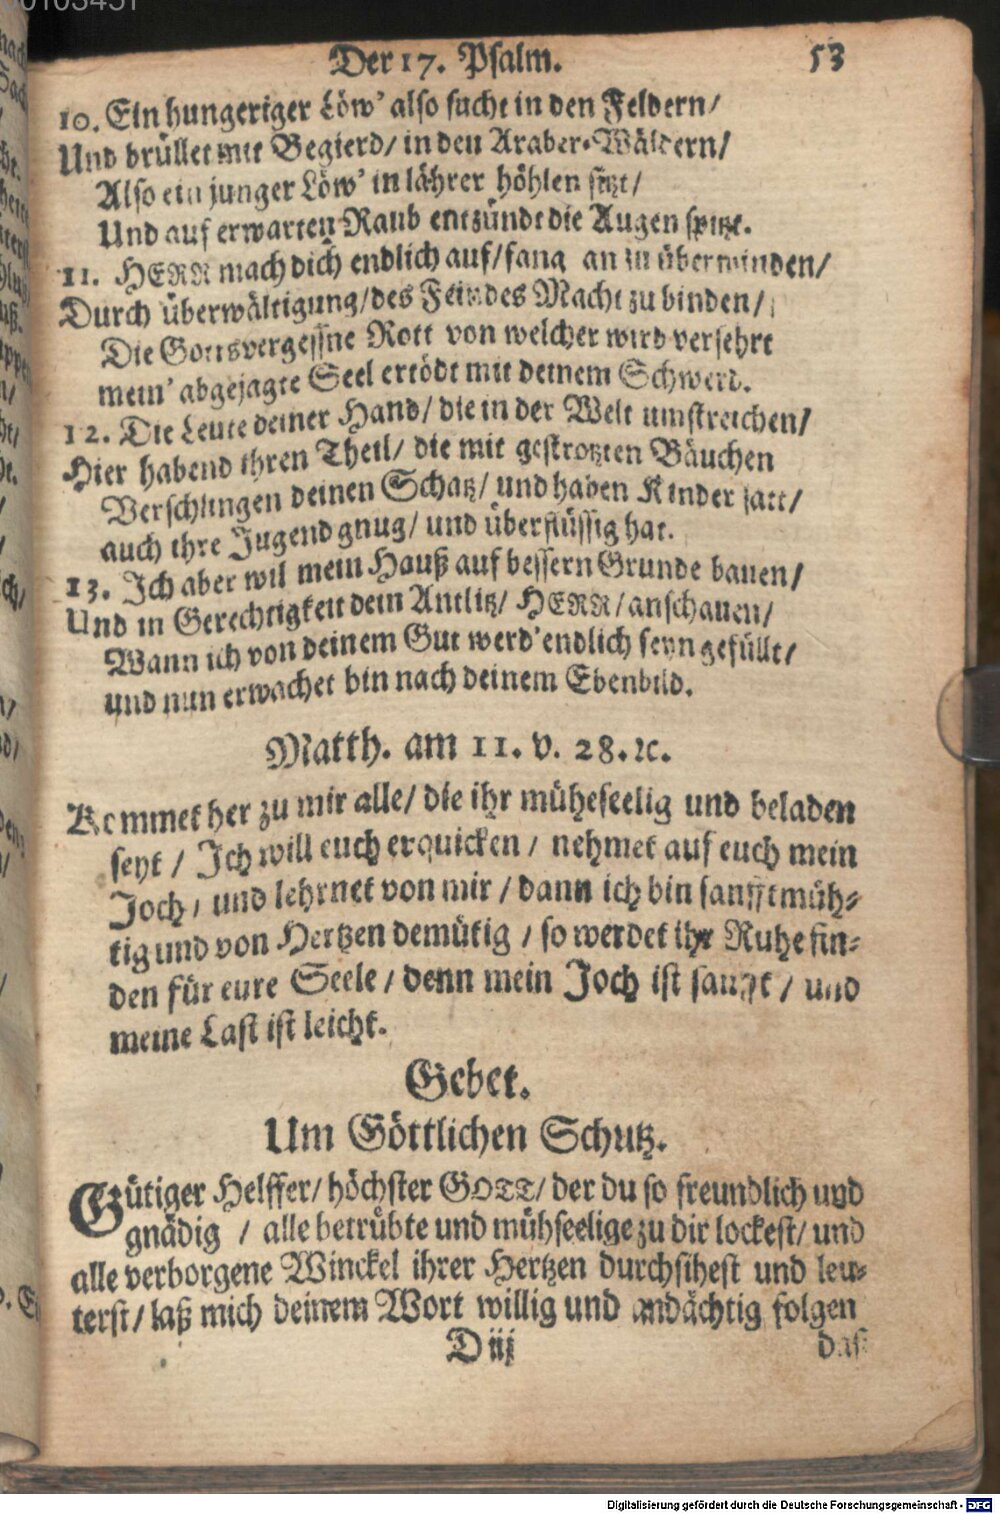 Der 17. Psalm. 53
10. Ein hungeriger Löw' also sucht in den Feldern/
Und brüllet mit Begierd/ in den Araber-Wäldern/
Also ein junger Löw' in lährer höhlen sitzt/
Und auf erwarten Raub entzündt die Augen spitzt.
11. HERR mach dich endlich auf/ fang an zu überwinden/
Durch überwältigung/ des Feindes Macht zu binden/
Die Gottsvergessne Rott von welcher wird versehrt
mein' abgejagte Seel ertödt mit deinem Schwerd.
12. Die Leute deiner Hand/ die in der Welt umstreichen/
Hier habend ihren Theil/ die mit gestrotzten Bäuchen
Verschlingen deinen Schatz/ und haben Kinder satt/
auch ihre Jugend gnug/ und überflüssig hat.
13. Ich aber wil mein Hauß auf bessern Grunde bauen/
Und in Gerechtigkeit dein Antlitz/ HERR/ anschauen/
Wann ich von deinem Gut werd' endlich seyn gefüllt/
und nun erwachet bin nach deinem Ebenbild.
Matth. am 11. v. 28. ꝛc.
Kommet her zu mir alle/ die ihr müheseelig und beladen
seyt / Ich will euch erquicken / nehmet auf euch mein
Joch/ und lehrnet von mir / dann ich bin sanfftmüh-
tig und von Hertzen demütig / so werdet ihr Ruhe fin-
den für eure Seele / denn mein Joch ist sanfft / und
meine Last ist leicht.
Gebet.
Um Göttlichen Schutz.
Gütiger Helffer/ höchster GOTT/ der du so freundlich und
gnädig / alle betrübte und mühseelige zu dir lockest/ und
alle verborgene Winckel ihrer Hertzen durchsihest und leu-
terst/ laß mich deinem Wort willig und andächtig folgen
D iij das
Digitalisierung gefördert durch die Deutsche Forschungsgemeinschaft - DFG